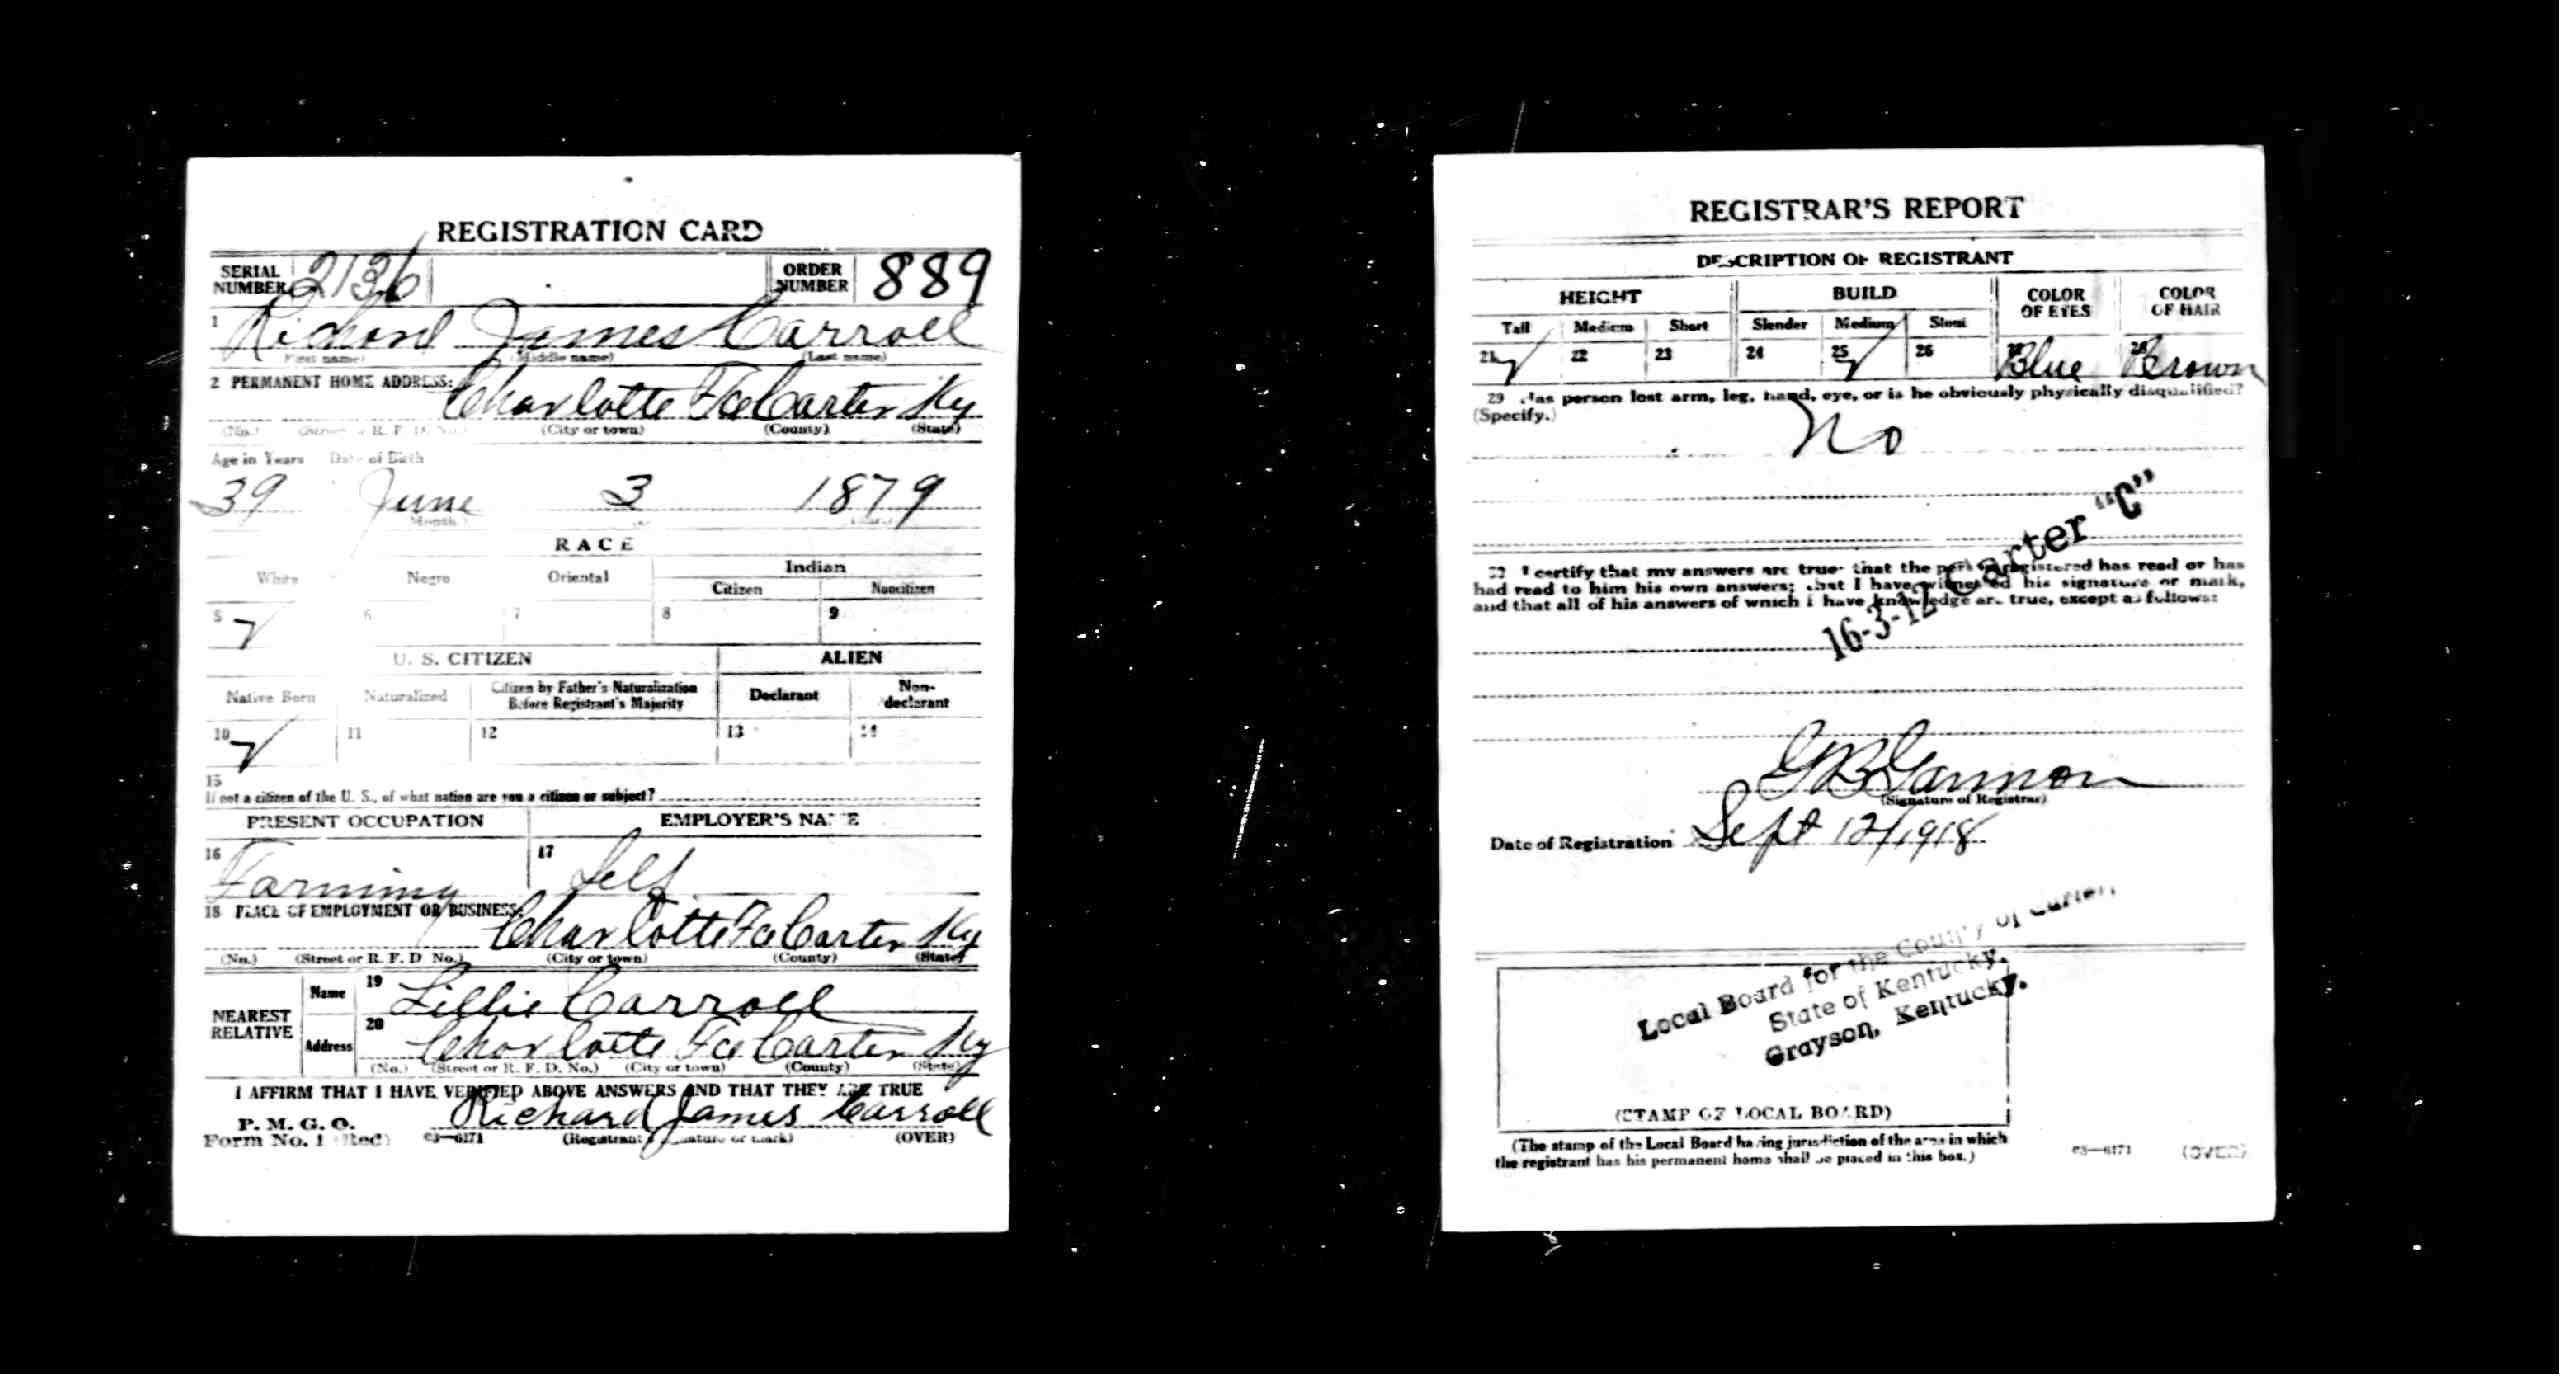 REGISTRATION CARD
SERIAL NUMBER 2136 ORDER NUMBER 889
1 Richard James Carroll
(First name) (Middle name) (Last name)
2 PERMANENT HOME ADDRESS:
Charlotte Fce Carter Ky
(No.) (Street or R. F. D. No.) (City or town) (County) (State)
Age in Years Date of Birth
39 June 3 1879
(Month.)
RACE
White Negro Oriental Indian
Citizen Noncitizen
5 ✓ 6 7 8 9
U. S. CITIZEN ALIEN
Native Born Naturalized Citizen by Father's Naturalization Before Registrant's Majority Declarant Non-declarant
10 ✓ 11 12 13 14
15
If not a citizen of the U. S., of what nation are you a citizen or subject?
PRESENT OCCUPATION EMPLOYER'S NAME
16 Farming 17 Self
18 PLACE OF EMPLOYMENT OR BUSINESS:
Charlotte Fce Carter Ky
(No.) (Street or R. F. D. No.) (City or town) (County) (State)
NEAREST RELATIVE Name 19 Lillie Carroll
Address 20 Charlotte Fce Carter Ky
(No.) (Street or R. F. D. No.) (City or town) (County) (State)
I AFFIRM THAT I HAVE VERIFIED ABOVE ANSWERS AND THAT THEY ARE TRUE
P. M. G. O.
Form No. 1 (Red) 03—6171 Richard James Carroll
(Registrant's signature or mark) (OVER)
REGISTRAR'S REPORT
DESCRIPTION OF REGISTRANT
HEIGHT BUILD COLOR OF EYES COLOR OF HAIR
Tall Medium Short Slender Medium Stout
21 ✓ 22 23 24 25 ✓ 26 Blue Brown
29 Has person lost arm, leg, hand, eye, or is he obviously physically disqualified?
(Specify.)
No
16-3-12 Carter "C"
I certify that my answers are true; that the person registered has read or has
had read to him his own answers; that I have witnessed his signature or mark,
and that all of his answers of which I have knowledge are true, except as follows:
G B Garmon
(Signature of Registrar)
Date of Registration Sept 12/1918
Local Board for the County of Carter,
State of Kentucky,
Grayson, Kentucky.
(STAMP OF LOCAL BOARD)
(The stamp of the Local Board having jurisdiction of the area in which
the registrant has his permanent home shall be placed in this box.)
03—6171 (OVER)